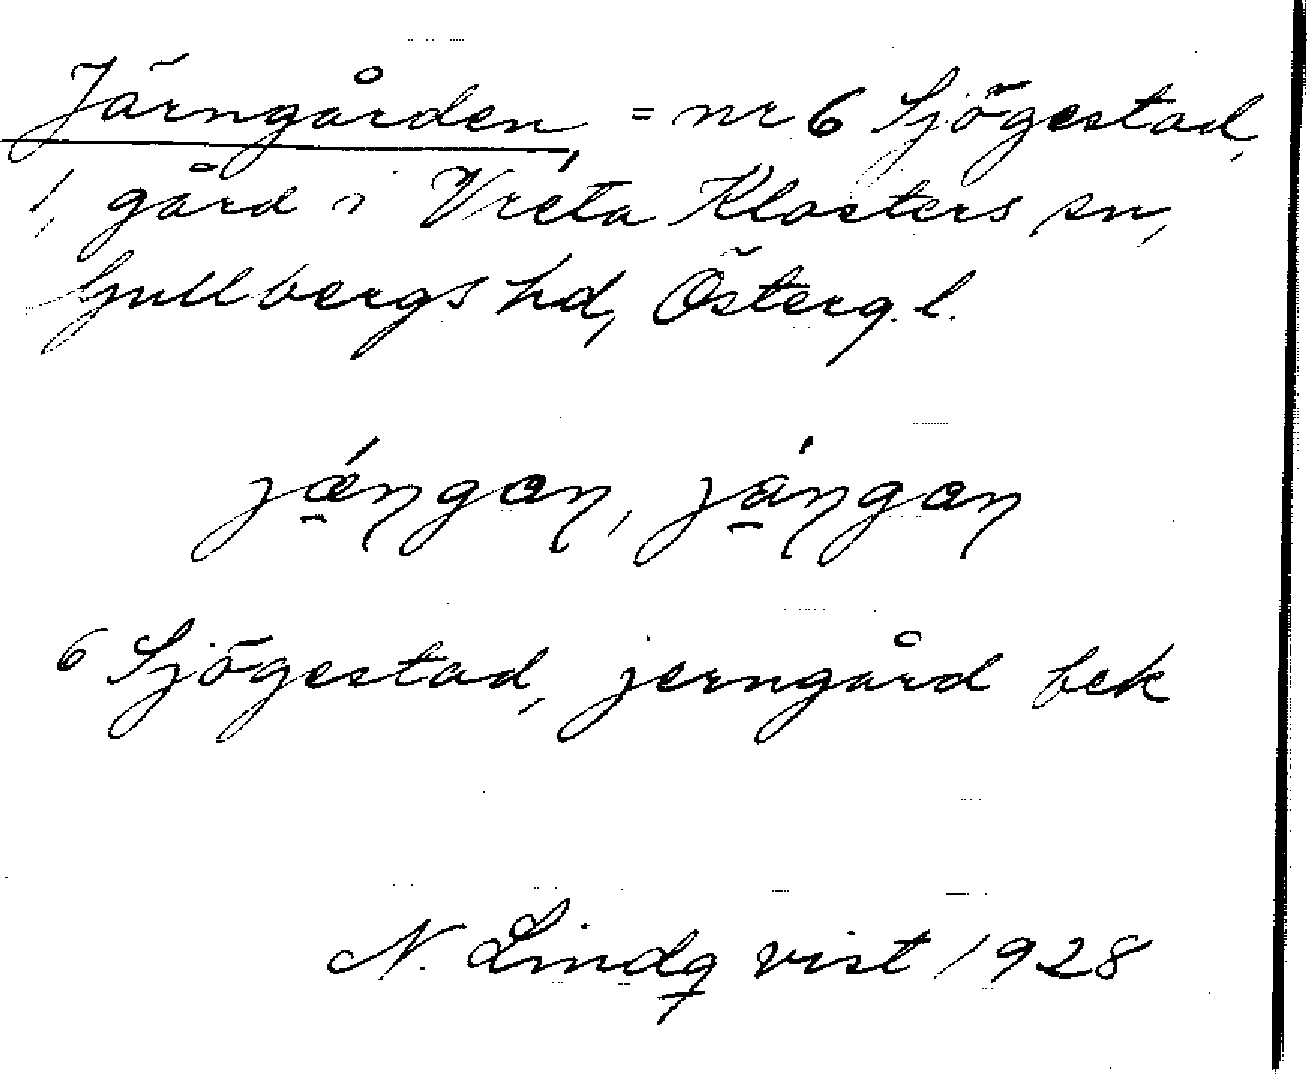 Järngården, = nr 6 Sjögestad,
1, gård i Vreta Klosters sn,
Gullbergs hd, Österg. l.
jǽŋgaŋ, jáŋgaŋ
6 Sjögestad, jerngård bek
N. Lindqvist 1928